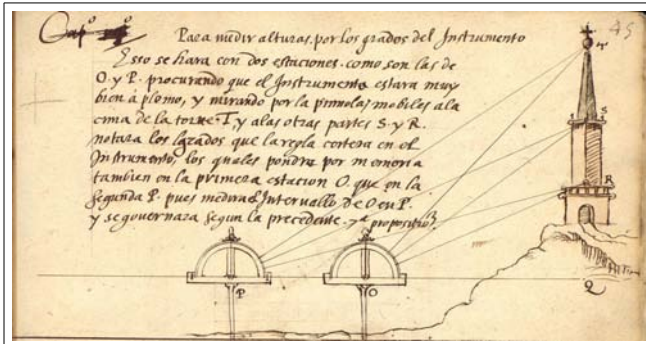 Cap.º
45
Para medir alturas, por los grados del Instrumento
Esso se hara con dos estaciones. como son las de
O. y P. procurando que el Instrumento estara muy
bien à plomo, y mirando por la pinnolas mobiles a la
cima de la torre. T, y a las otras partes S. y R.
notara los grados que la regla cortera en el
Instrumento, los quales pondra por memoria
tambien en la primera estacion O. que en la
segunda P. pues medira el Intervallo de O en P.
y se governara segun la precedente. 7ª propositio
T
S
R
P
O
Q